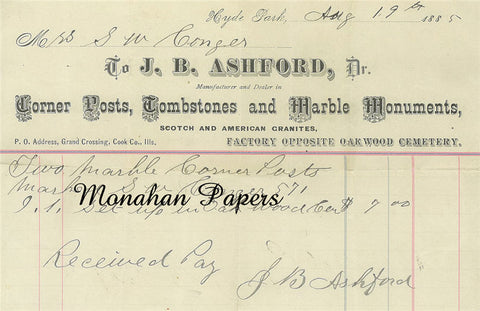 Hyde Park, Aug 19th 1885
Mrs S W Conger
To J. B. ASHFORD, Dr.
Manufacturer and Dealer in
Corner Posts, Tombstones and Marble Monuments,
SCOTCH AND AMERICAN GRANITES,
P. O. Address, Grand Crossing, Cook Co., Ills.
FACTORY OPPOSITE OAKWOOD CEMETERY.
Two Marble Corner Posts
S. W. Conger
Monahan Papers
Set up in Oak Wood Cem $ 7 00
Received Pay
J B Ashford